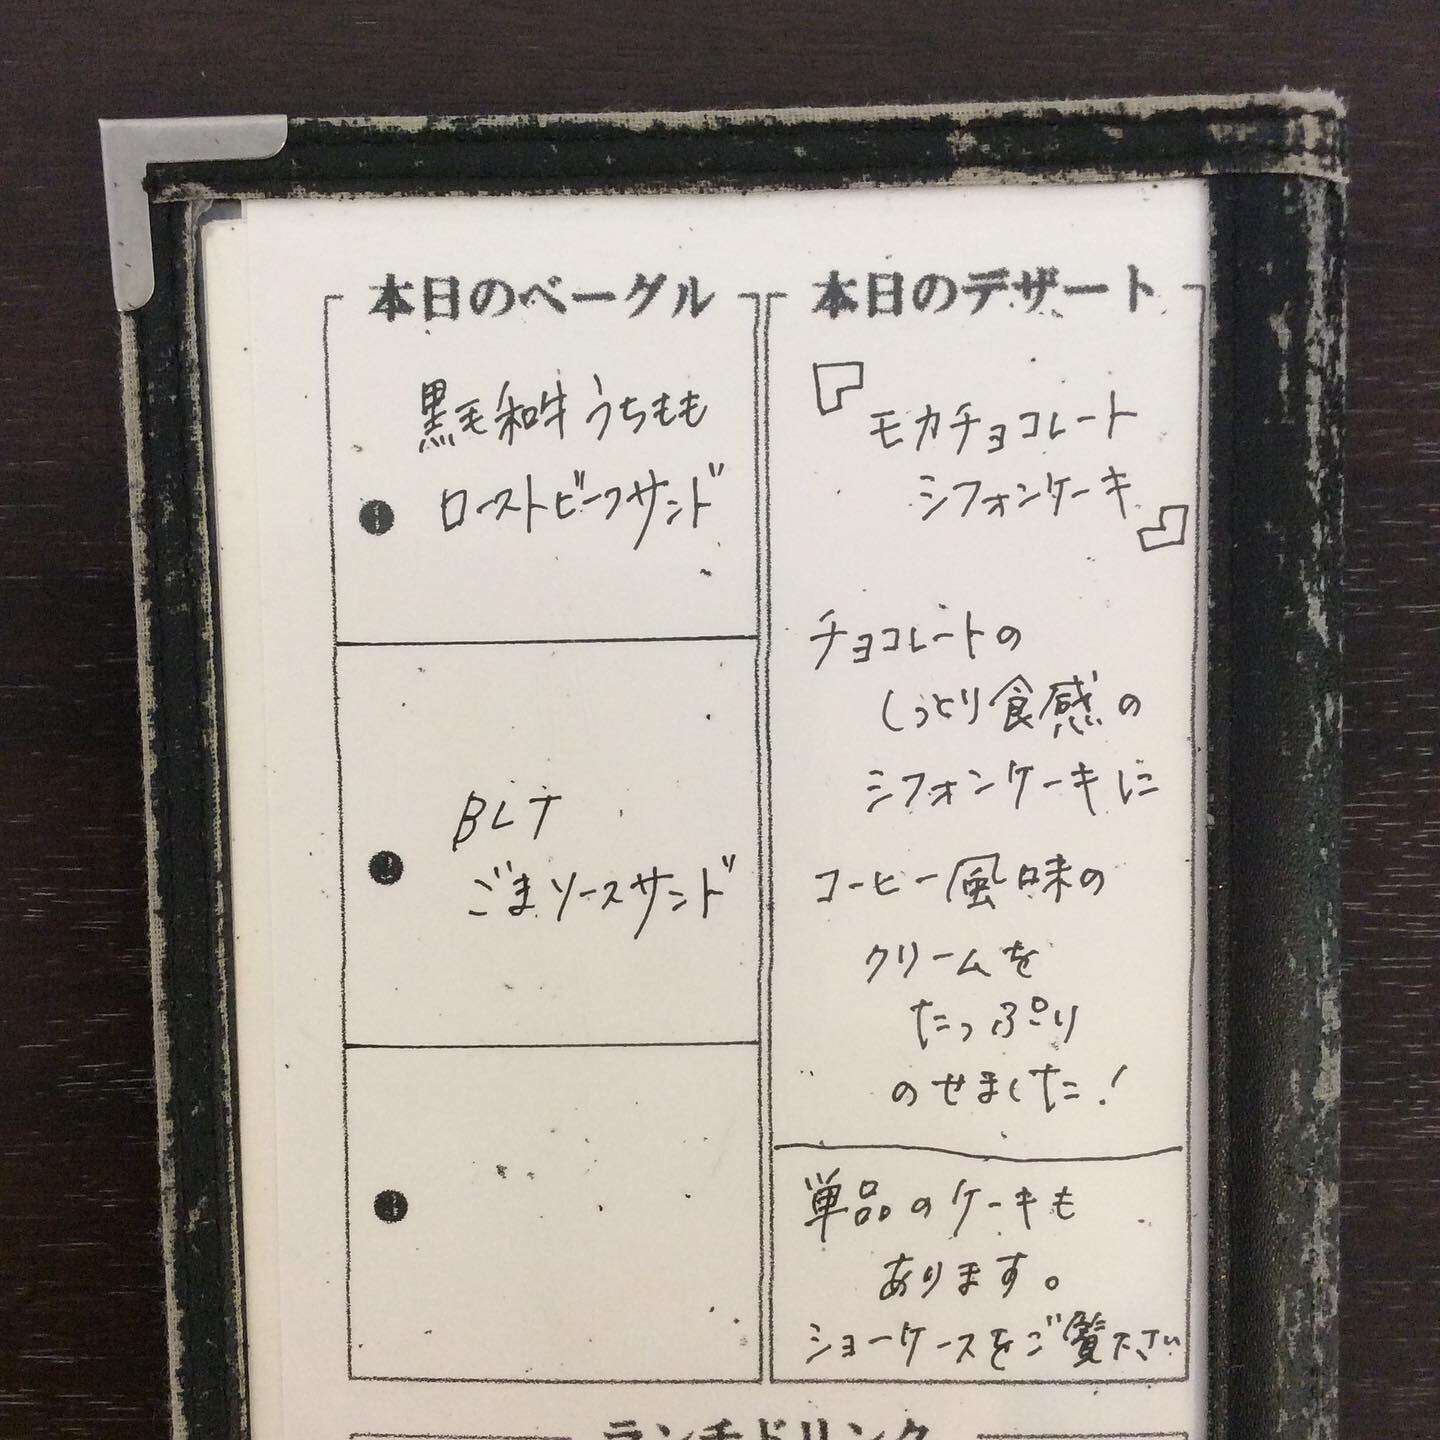 本日のベーグル
黒毛和牛うちもも
ローストビーフサンド
BLT
ごまソースサンド
本日のデザート
『モカチョコレート
シフォンケーキ』
チョコレートの
しっとり食感の
シフォンケーキに
コーヒー風味の
クリームを
たっぷり
のせました!
単品のケーキも
あります。
ショーケースをご覧下さい
ランチドリンク